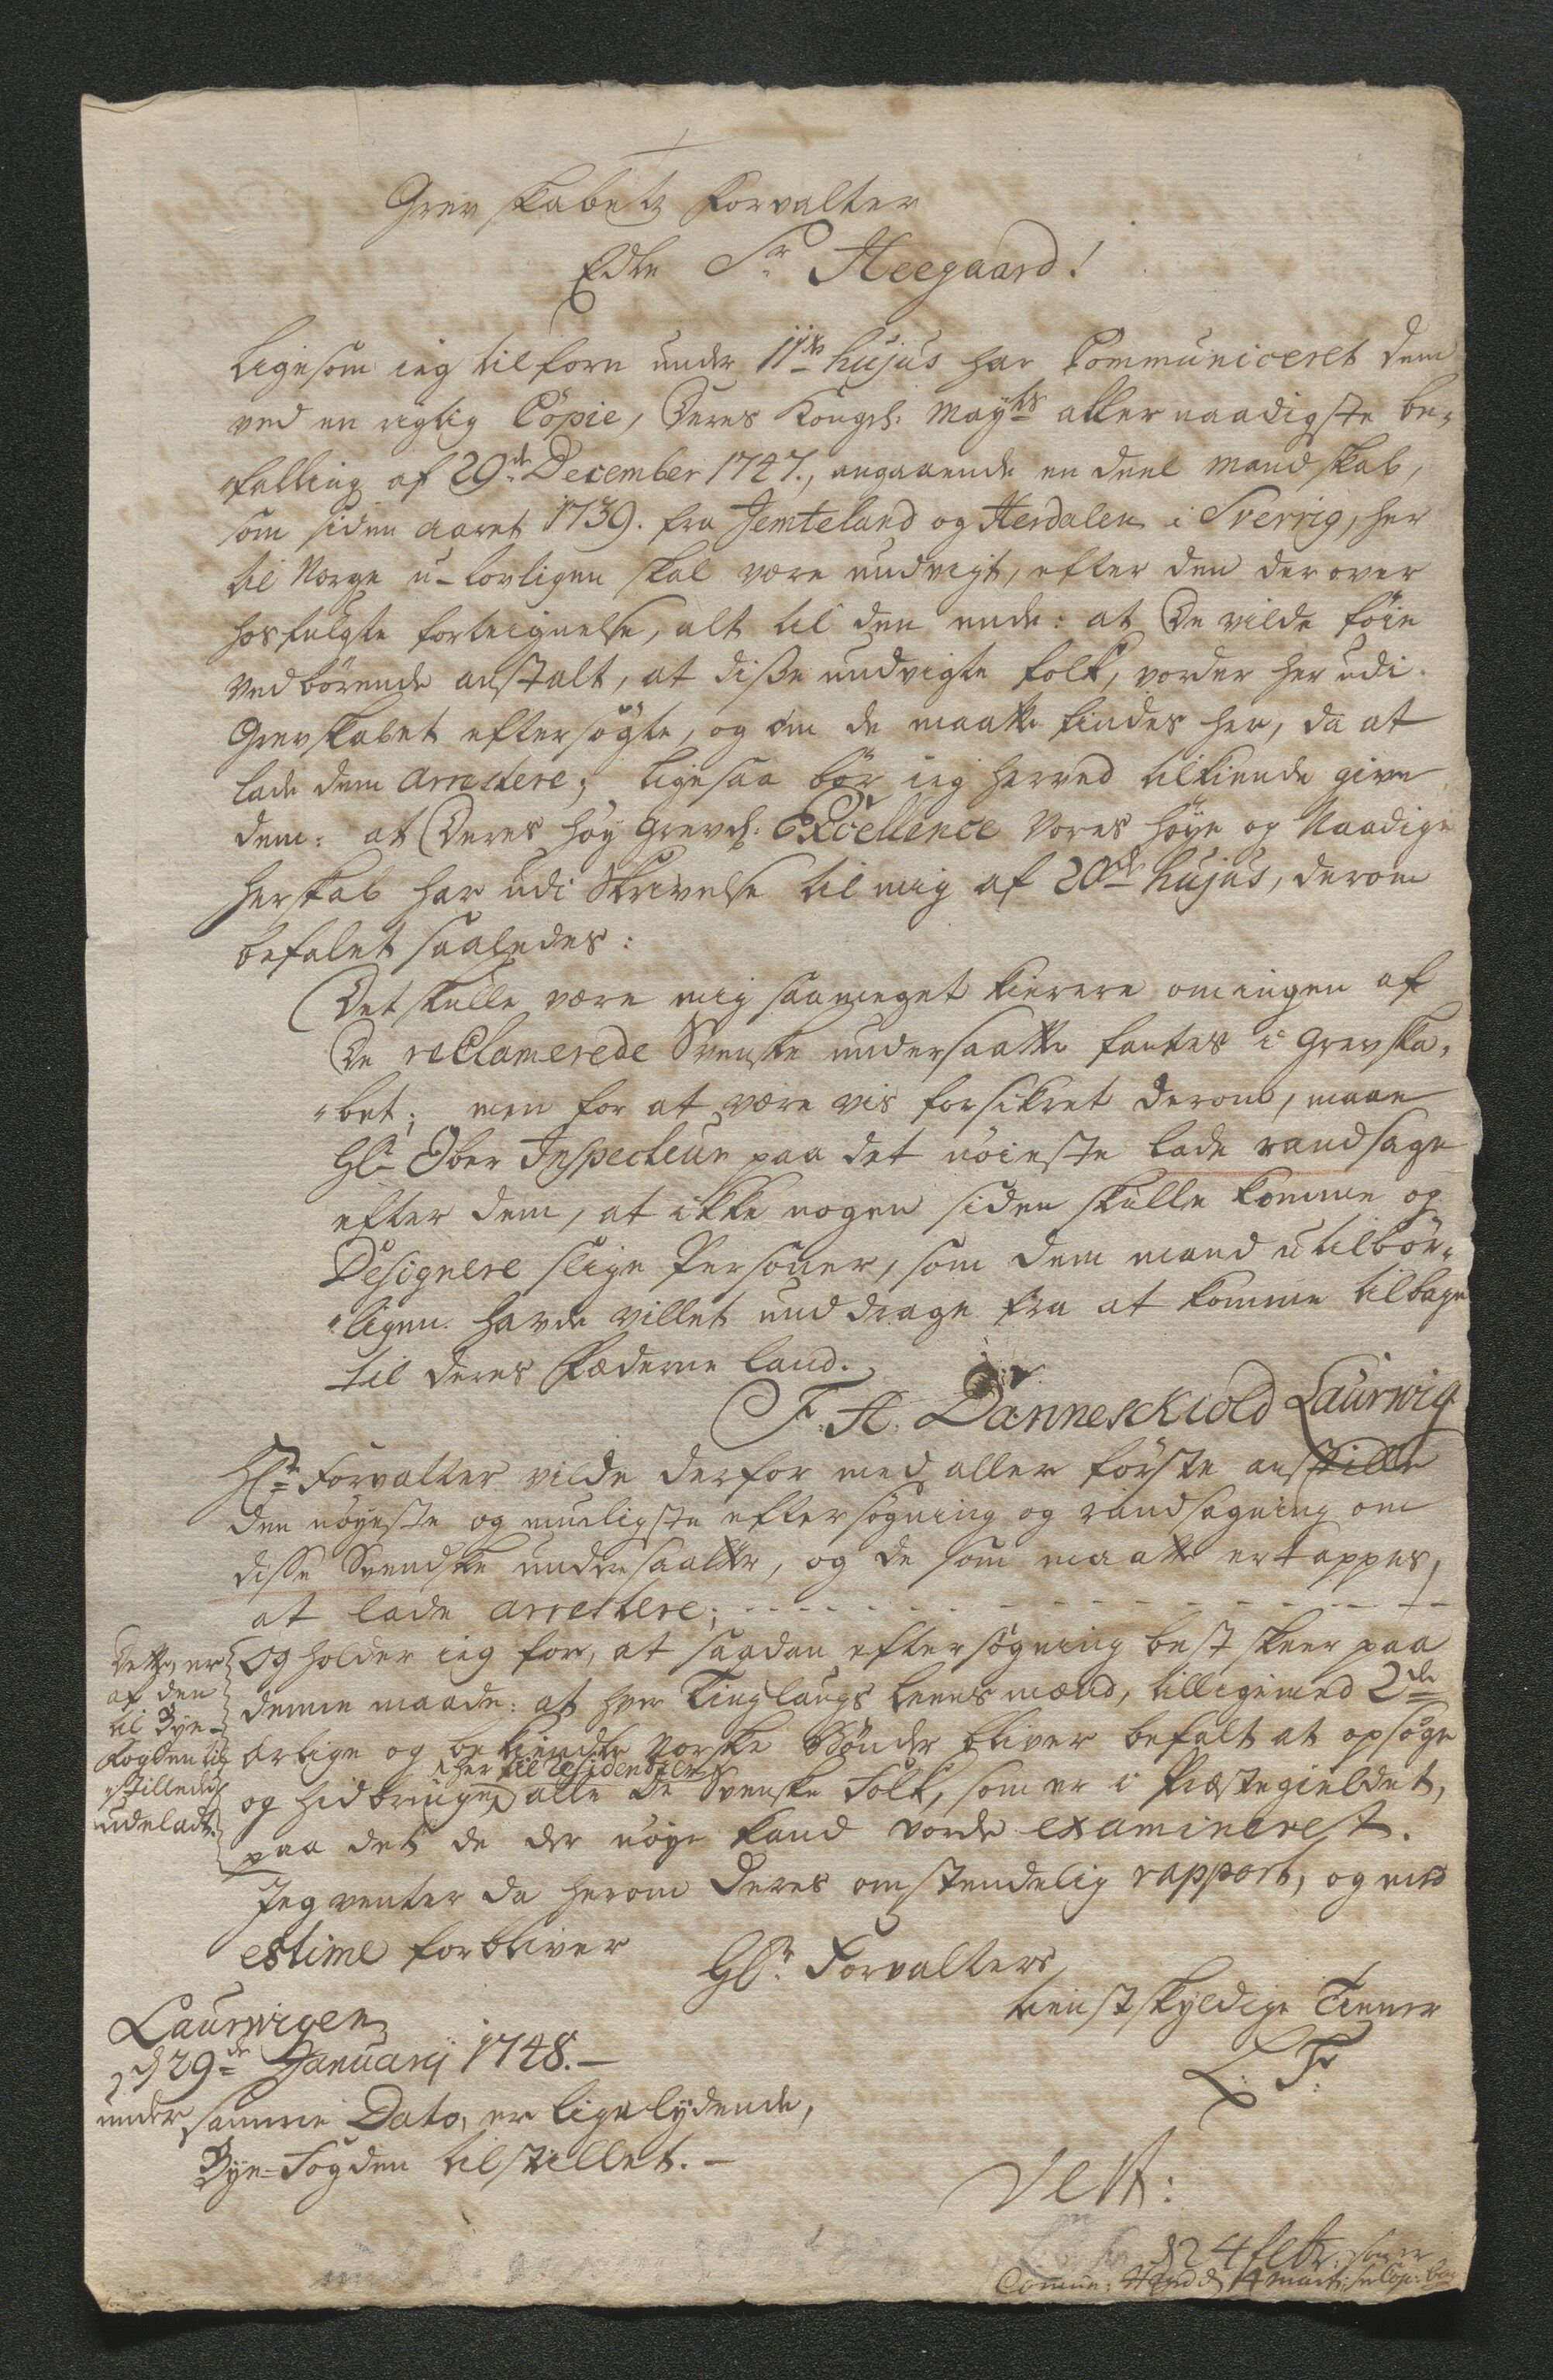 Grev skabets Forvalter
Edle Sr Heegaard!
Ligesom ieg tilforn under 11te hujus har Communiceret dem
ved en rigtig Copie, Deres Kongl: Mayts aller naadigste be-
falling af 29de December 1747., angaaende en deel mandskab,
som siden aaret 1739. fra Jemteland og Herdalen i Sverrig, her
til Norge u-lovligen skal være undvigt, efter den der over
hosfulgte forteignelse, alt til den ende: at De vilde föie
vedbörende anstalt, at disse undvigte folk, vorder her udi
Grevskabet eftersögte, og om de maatte findes her, da at
lade dem arrestere; ligesaa bör ieg herved tilkiende give
dem: at Deres Höy Grevel: Excellence Vores Höye og Naadige
Herskab har udi Skrivelse til mig af 20de hujus, derom
befalet saaledes:
Det skulle være mig saameget kierere om ingen af
De reclamerede Svenske undersaatte fantes i Grevska-
bet; men for at være vis forsikret derom, maae
Hr Ober Inspecteur paa det nöieste lade randsage
efter dem, at ikke nogen siden skulle komme og
Designere slige Personer, som dem mand utilbör-
ligen havde villet unddrage fra at komme tilbage
til deres Fæderne land.
F. A. Danneskiold Laurwig
Hr Forvalter vilde derfor med aller förste anstille
den nöyeste og muligste eftersögning og randsagning om
disse Svendske undersaatter, og de som maatte ertappes,
at lade arrestere;
Og holder ieg for, at saadan eftersögning best skeer paa
denne maade: at hver Tinglaugs Lensmænd, tilligemed 2de
ærlige og bekiendte Norske Bönder bliver befalt at opsöge
her til Residentzet
og hidbringe alle De Svenske Folk, som er i Præstegieldet,
paa det de der nöye kand vorde examinerest.
Dette, er
af den
til Bye-
fogden til
stillede
udeladt.
Jeg venter da herom Deres omstendelig rapport, og med
estime forbliver
Hr. Forvalters
tienstskyldige Tiener
Laurwigen
d 29de Januarij 1748.
under samme Dato, er ligelydende,
Bye-Fogden tilstillet.
Vert:
d 24 febr: